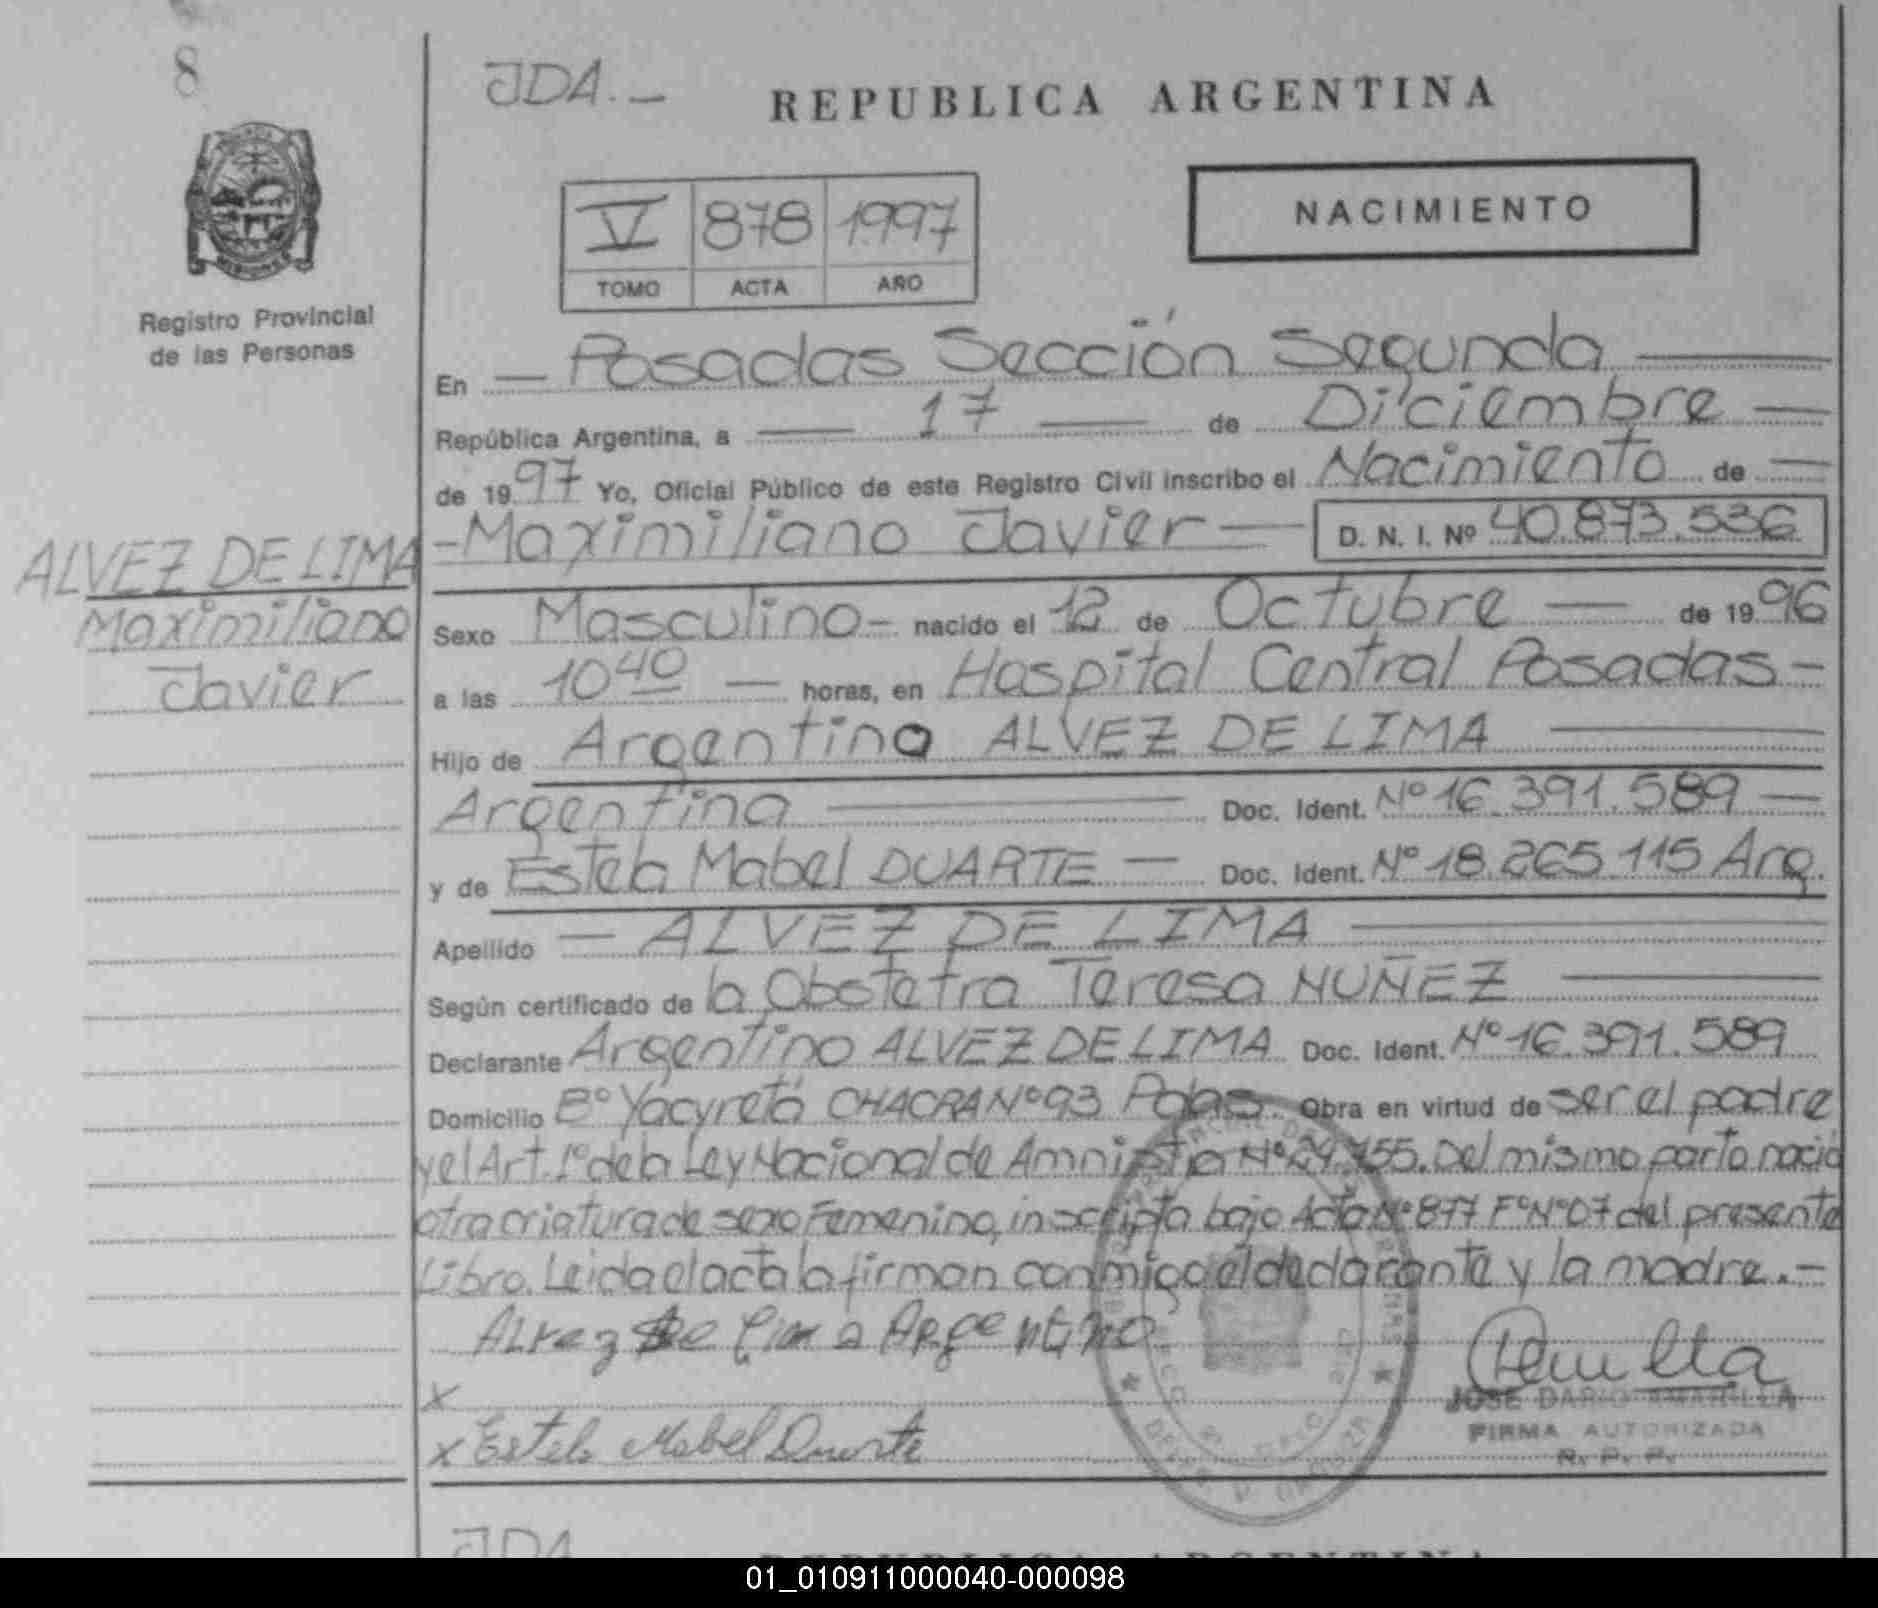 8
JDA.-
REPUBLICA ARGENTINA
NACIMIENTO
V 878 1997
TOMO ACTA AÑO
MISIONES
Registro Provincial
de las Personas
En — Posadas Sección Segunda —
República Argentina, a — 17 — de Diciembre —
de 1997 Yo, Oficial Público de este Registro Civil inscribo el Nacimiento de —
- Maximiliano Javier — D. N. I. Nº 40.873.536
ALVEZ DE LIMA
Maximiliano
Javier
Sexo Masculino - nacido el 12 de Octubre — de 1996
a las 10 40 — horas, en Hospital Central Posadas -
Hijo de Argentino ALVEZ DE LIMA —
Argentina — Doc. Ident. Nº 16.391.589 —
y de Estela Mabel DUARTE — Doc. Ident. Nº 18.265.115 Arg.
Apellido — ALVEZ DE LIMA —
Según certificado de la Obstetra Teresa NUÑEZ —
Declarante Argentino ALVEZ DE LIMA Doc. Ident. Nº 16.391.589
Domicilio Bº Yacyretá CHACRA Nº 93 Pdas. Obra en virtud de ser el padre
y el Art. 1º de la Ley Nacional de Amnistia Nº 24.755. Del mismo parto nació
otra criatura de sexo Femenino, inscripta bajo Acta Nº 877 Fº Nº 07 del presente
Libro. Leida el acta la firman conmigo el declarante y la madre.-
Alvez De Lima Argentino
X
X Estela Mabel Duarte
JOSE DARIO AMARILLA
FIRMA AUTORIZADA
R. P. P.
JDA
REPUBLICA ARGENTINA
01_010911000040-000098